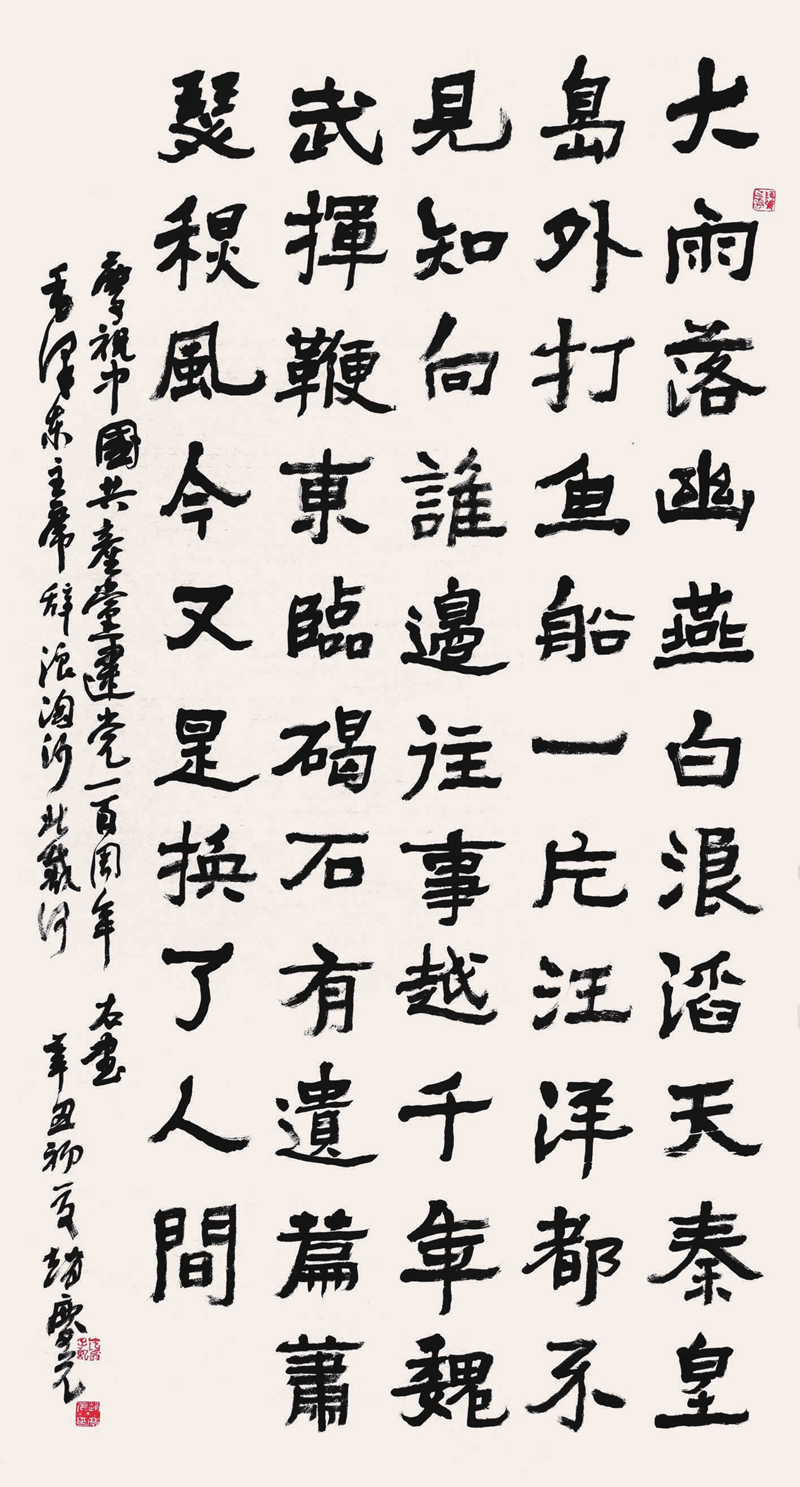 大雨落幽燕白浪滔天秦皇
島外打鱼船一片汪洋都不
見知向誰邊往事越千年魏
武揮鞭東臨碣石有遺篇蕭
瑟秋風今又是換了人間
慶祝中國共產黨建党一百周年 右書
毛澤东主席辞浪淘沙北戴河 辛丑初夏趙慶元